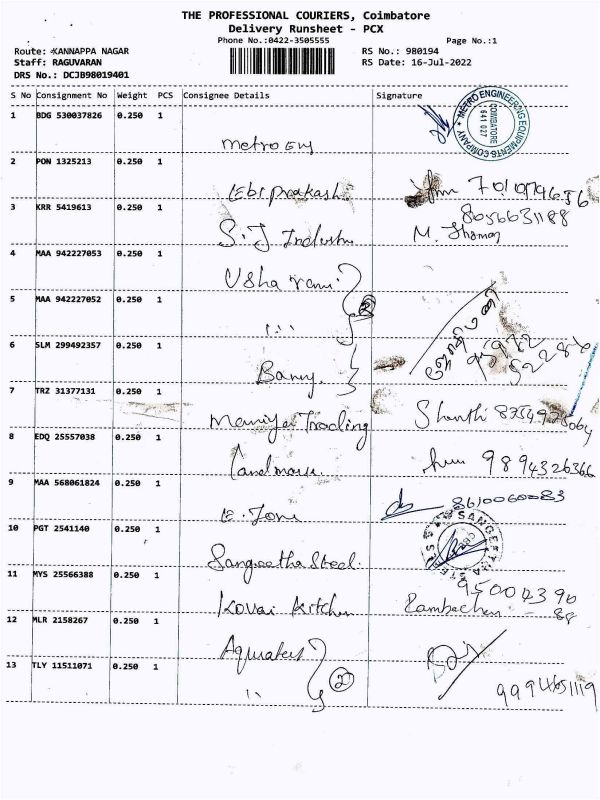 THE PROFESSIONAL COURIERS, Coimbatore
Delivery Runsheet - PCX
Phone No.:0422-3505555 Page No.:1
Route: KANNAPPA NAGAR RS No.: 980194
Staff: RAGUVARAN RS Date: 16-Jul-2022
DRS No.: DCJB98019401
S No Consignment No Weight PCS Consignee Details Signature
1 BDG 530037826 0.250 1
METRO ENGINEERING EQUIPMENTS COMPANY
COIMBATORE
641 027
Metro Eng
2 PON 1325213 0.250 1
Prakash
3 KRR 5419613 0.250 1
8056631188
S.J Industri M.
4 MAA 942227053 0.250 1
Usha rani
5 MAA 942227052 0.250 1
2
6 SLM 299492357 0.250 1
52286
7 TRZ 31377131 0.250 1
Trading Shanthi
8 EDQ 25557038 0.250 1
Landmark 9894326366
9 MAA 568061824 0.250 1
8610060083
E. Zone
10 PGT 2541140 0.250 1
SANGEETHA STEELS
CBE
Sangeetha Steel.
11 MYS 25566388 0.250 1
95001390
Kovai Kitchen - 88
12 MLR 2158267 0.250 1
13 TLY 11511071 0.250 1
2
9994651119